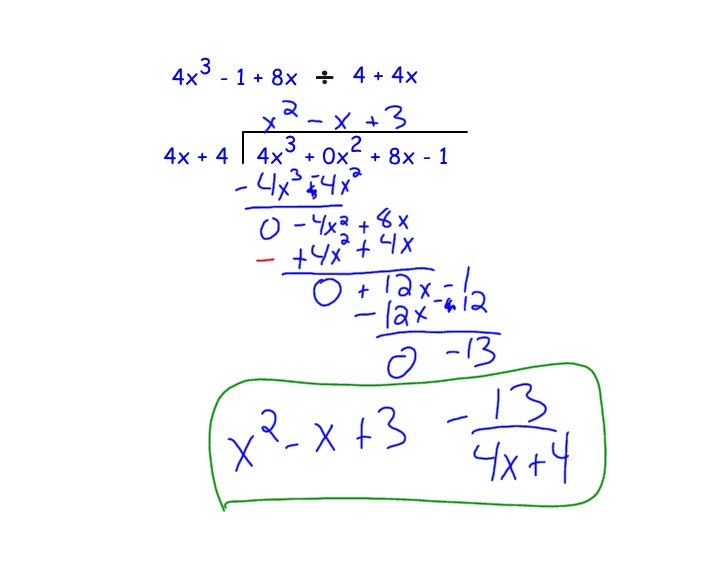 4x³ - 1 + 8x ÷ 4 + 4x
x² - x + 3
4x + 4 4x³ + 0x² + 8x - 1
- 4x³ - 4x²
0 - 4x² + 8x
- + 4x² + 4x
0 + 12x - 1
- 12x - 12
0 - 13
x² - x + 3 - 13
4x + 4